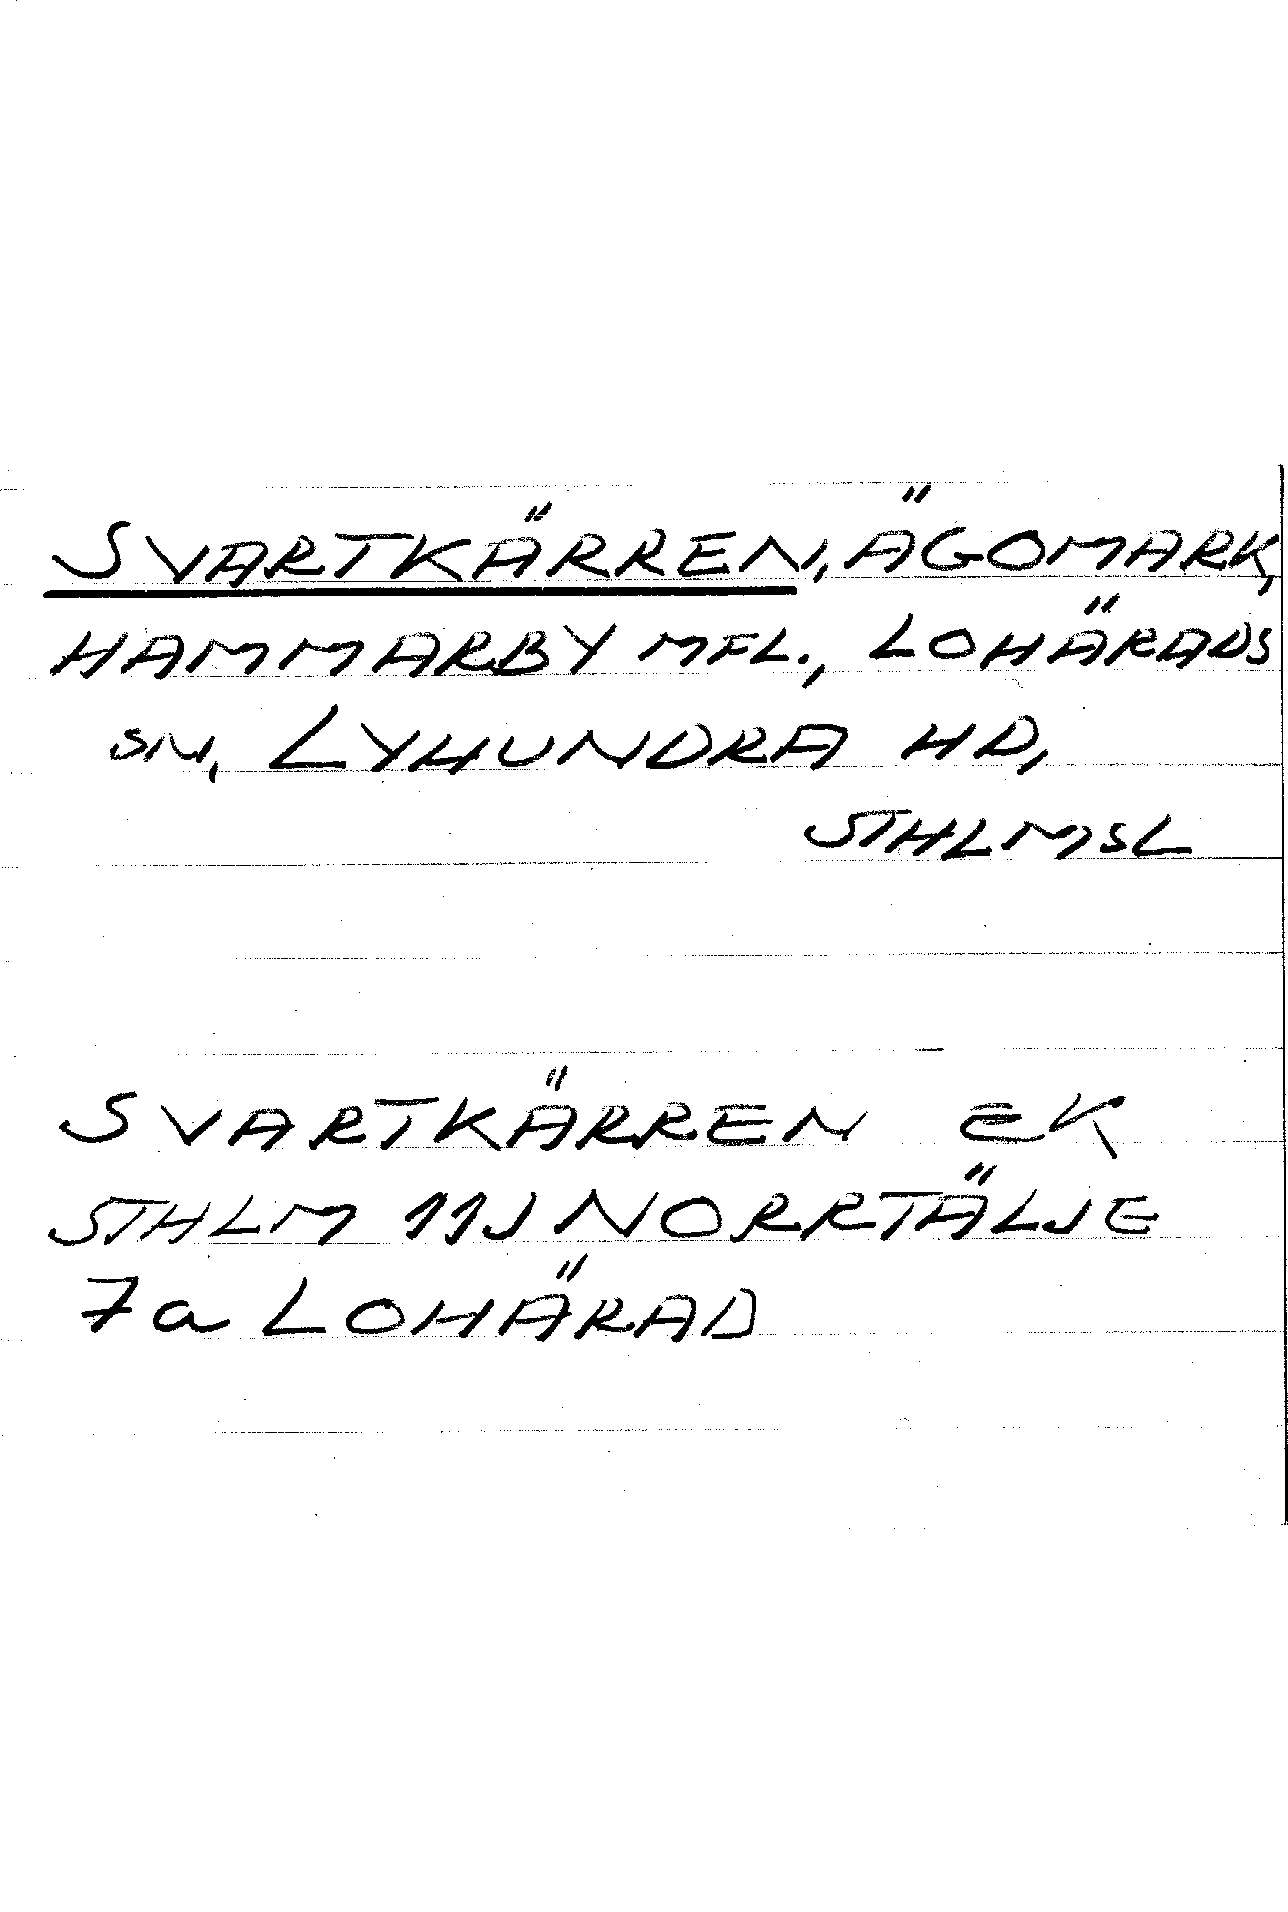 SVARTKÄRREN, ÄGOMARK,
HAMMARBY MFL., LOHÄRADS
SN, LYHUNDRA HD,
STHLMSL
SVARTKÄRREN EK
STHLM 11J NORRTÄLJE
7a LOHÄRAD